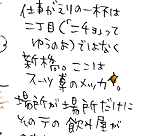 仕事がえりの一杯は
二丁目で「チョっと
ゆうのよ」ではなく
新橋。ここは
スーツ草のメッカ
場所が場所だけに
そのテの飲み屋が